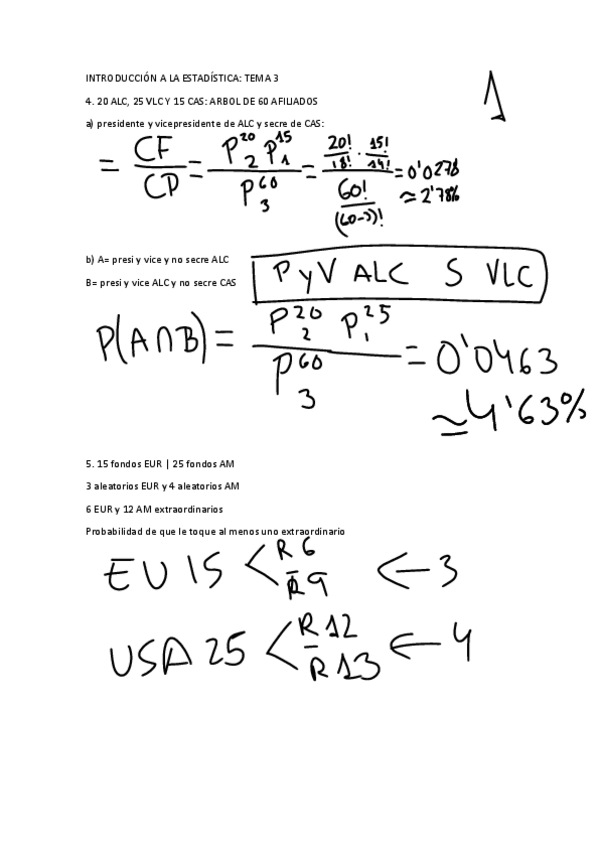 INTRODUCCIÓN A LA ESTADÍSTICA: TEMA 3
1
4. 20 ALC, 25 VLC Y 15 CAS: ARBOL DE 60 AFILIADOS
a) presidente y vicepresidente de ALC y secre de CAS:
= CF/CP = P₂²⁰ P₁¹⁵ / P₃⁶⁰ = (20!/18! · 15!/14!) / (60!/(60-3)!) = 0'0278
≃ 2'78%
b) A= presi y vice y no secre ALC
B= presi y vice ALC y no secre CAS
P y V ALC S VLC
P(A∩B) = P₂²⁰ P₁²⁵ / P₃⁶⁰ = 0'0463
≃ 4'63%
5. 15 fondos EUR | 25 fondos AM
3 aleatorios EUR y 4 aleatorios AM
6 EUR y 12 AM extraordinarios
Probabilidad de que le toque al menos uno extraordinario
EU 15 < R 6
R̅ 9 ← 3
USA 25 < R 12
R̅ 13 ← 4